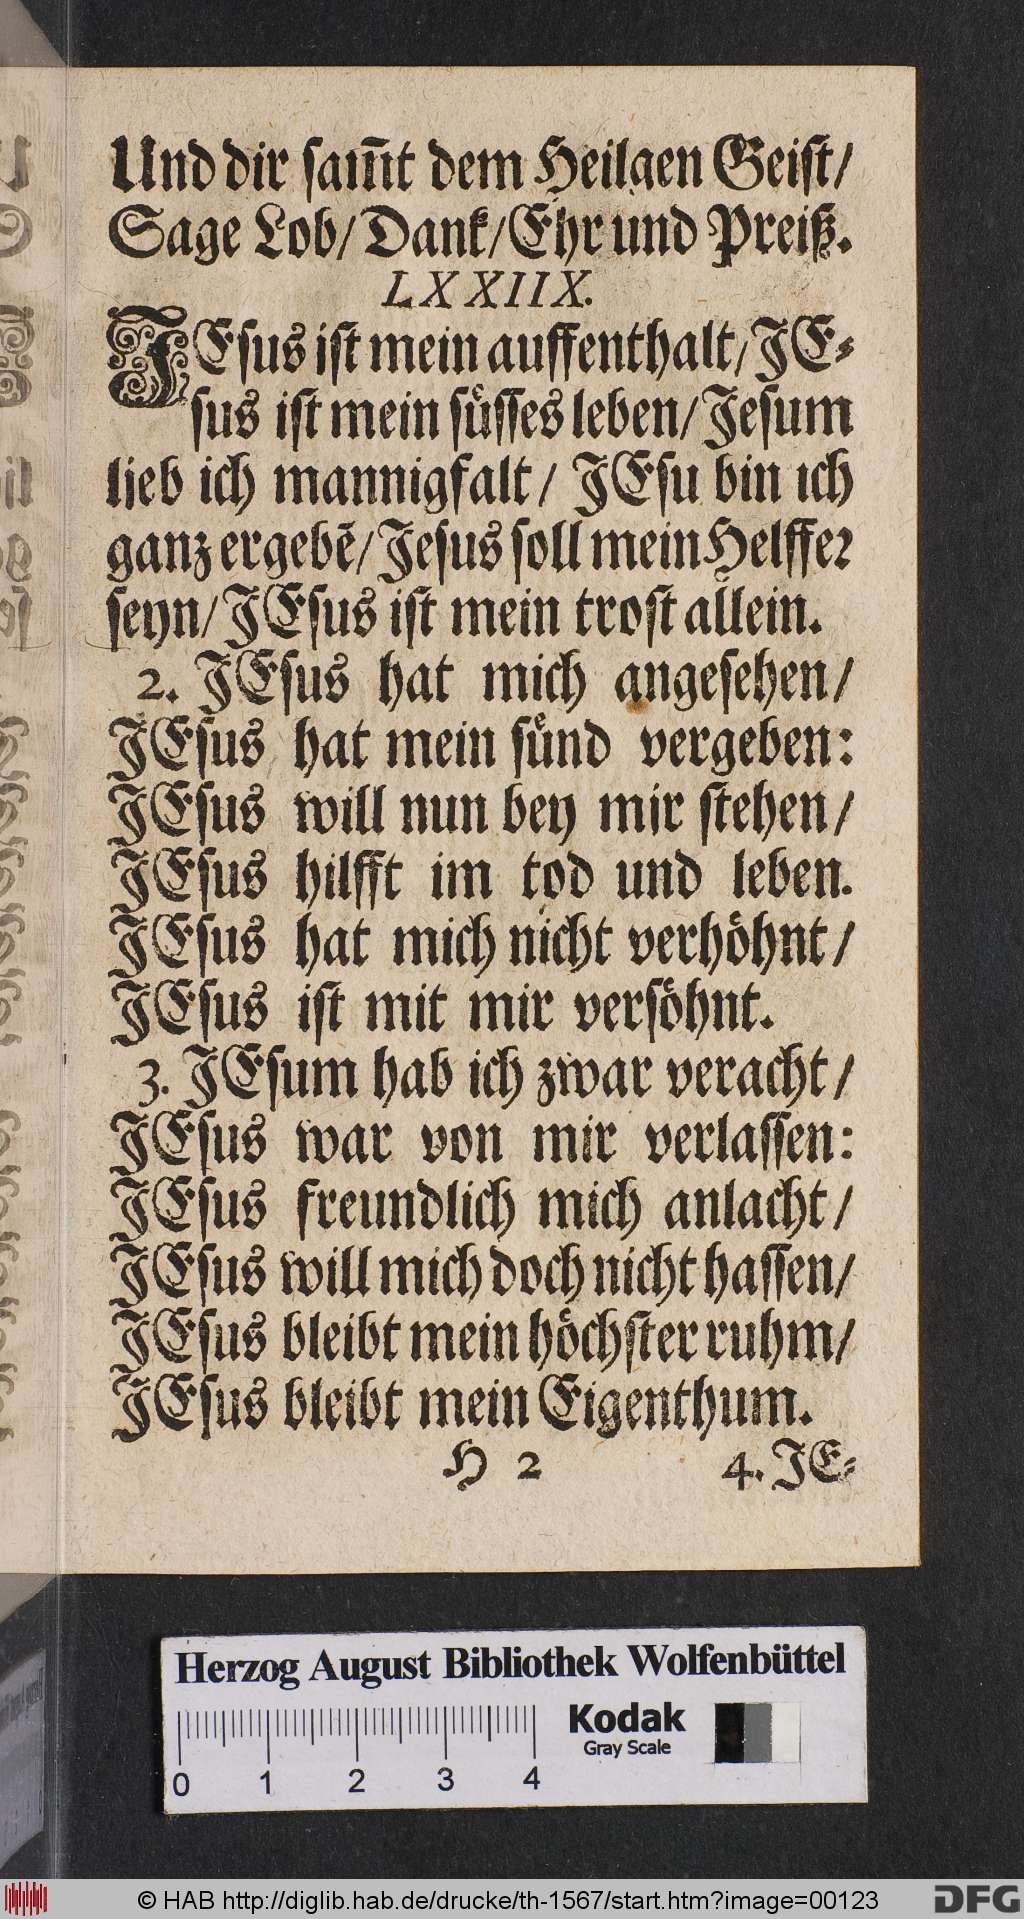 Und dir sam̃t dem Heilgen Geist/
Sage Lob/ Dank/ Ehr und Preiß.
LXXIIX.
JEsus ist mein auffenthalt/ JE⸗
sus ist mein süsses leben/ Jesum
lieb ich mannigfalt/ JEsu bin ich
ganz ergebẽ/ Jesus soll mein Helffer
seyn/ JEsus ist mein trost allein.
2. JEsus hat mich angesehen/
JEsus hat mein sünd vergeben:
JEsus will nun bey mir stehen/
JEsus hilfft im tod und leben.
JEsus hat mich nicht verhöhnt/
JEsus ist mit mir versöhnt.
3. JEsum hab ich zwar veracht/
JEsus war von mir verlassen:
JEsus freundlich mich anlacht/
JEsus will mich doch nicht hassen/
JEsus bleibt mein höchster ruhm/
JEsus bleibt mein Eigenthum.
H 2 4. JE⸗
Herzog August Bibliothek Wolfenbüttel
Kodak
Gray Scale
0 1 2 3 4
© HAB http://diglib.hab.de/drucke/th-1567/start.htm?image=00123
DFG